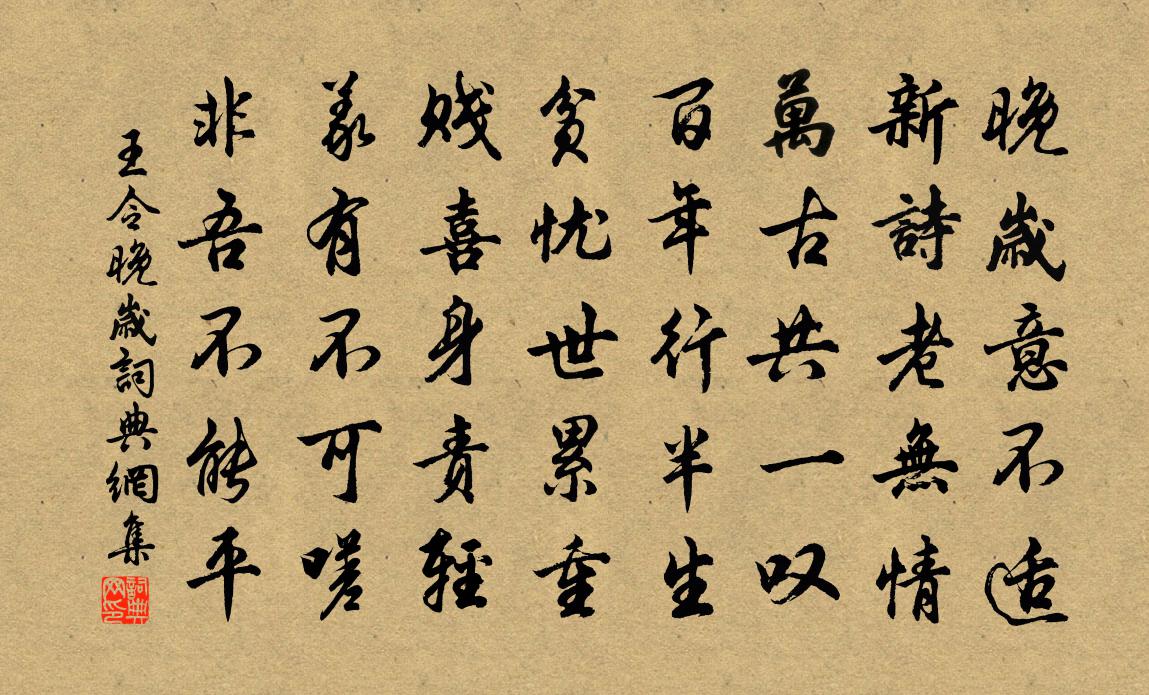 晚歲意不适
新詩老無情
萬古共一叹
百年行半生
貧忧世累重
賤喜身責輕
義有不可嗟
非吾不能平
王令晚歲詞典網集
詞典网印